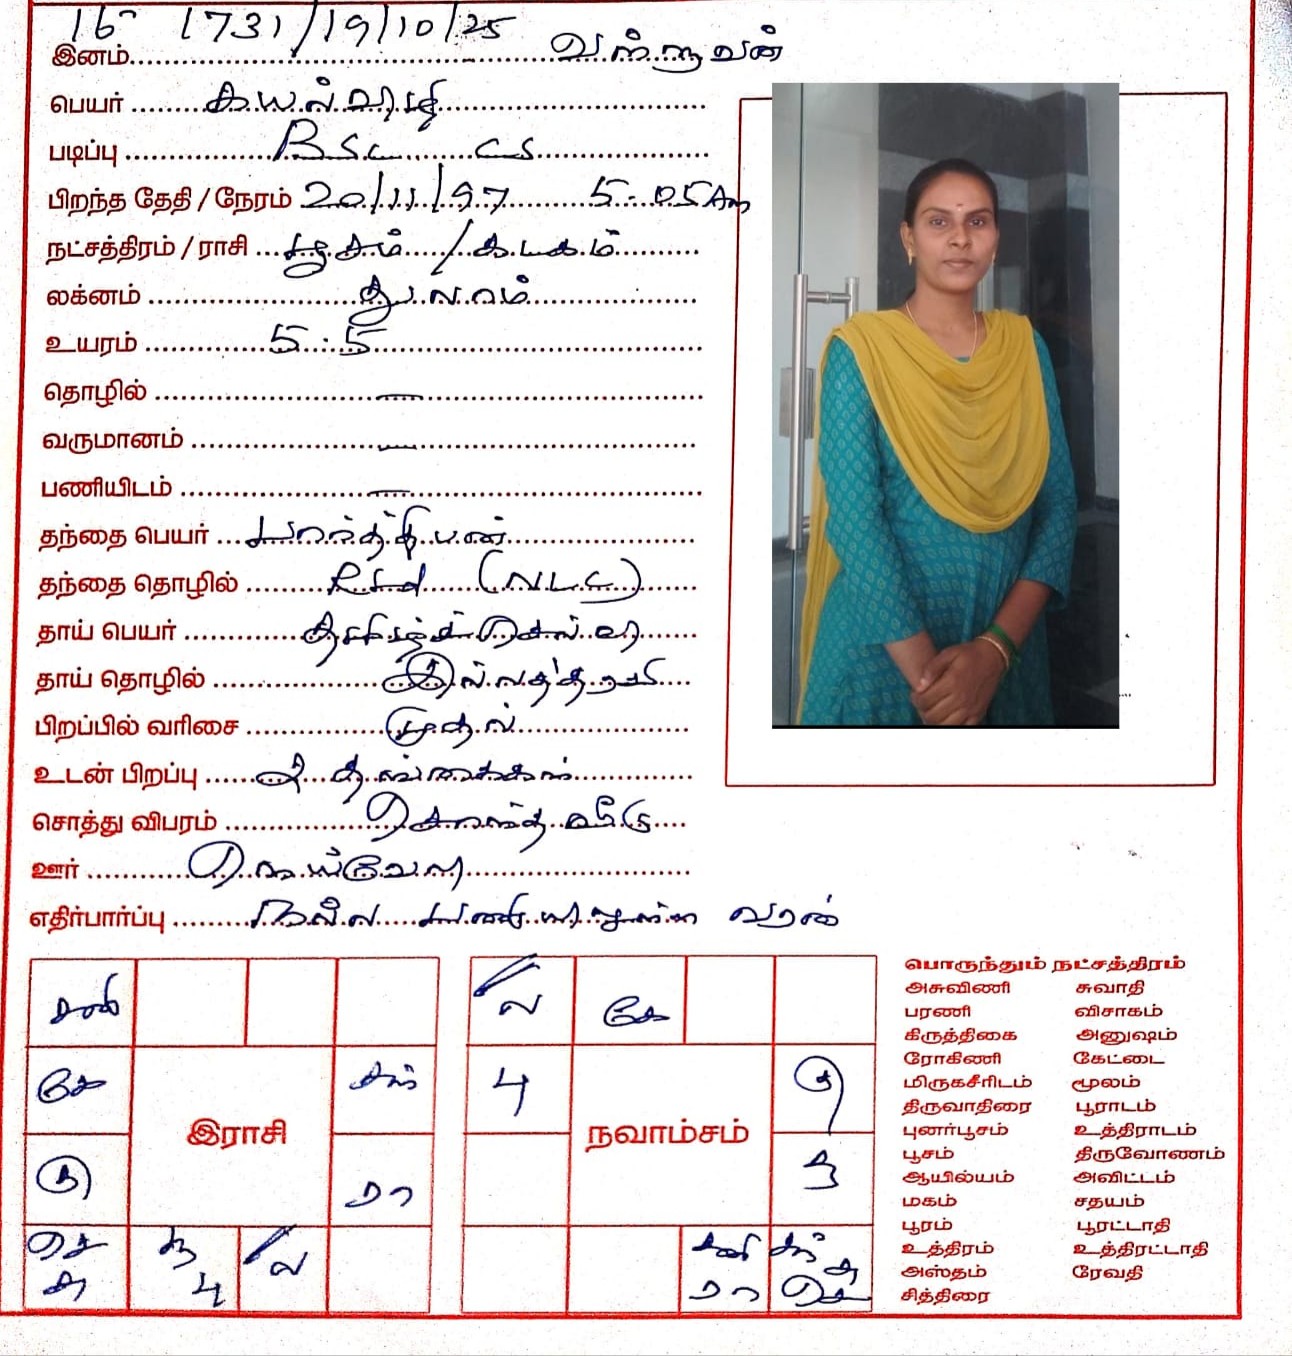 16 1731/19/10/25
இனம் வள்ளுவன்
பெயர் கயல்விழி
படிப்பு BSc CS
பிறந்த தேதி / நேரம் 20/11/97 5:05 Am
நட்சத்திரம் / ராசி பூசம் / கடகம்
லக்னம் துலாம்
உயரம் 5:5
தொழில் —
வருமானம் —
பணியிடம் —
தந்தை பெயர் பார்த்திபன்
தந்தை தொழில் (NLC)
தாய் பெயர் தமிழ்ச்செல்வி
தாய் தொழில் இல்லத்தரசி
பிறப்பில் வரிசை முதல்
உடன் பிறப்பு 2 தங்கைகள்
சொத்து விபரம் சொந்த வீடு
ஊர் நெய்வேலி
எதிர்பார்ப்பு நல்ல பணியிலுள்ள வரன்
சனி
கே சந்
குரு ரா
இராசி
செ சு சூ பு ல
ல கே
பு
நவாம்சம்
சனி ரா
பொருந்தும் நட்சத்திரம்
அசுவிணி சுவாதி
பரணி விசாகம்
கிருத்திகை அனுஷம்
ரோகிணி கேட்டை
மிருகசீரிடம் மூலம்
திருவாதிரை பூராடம்
புனர்பூசம் உத்திராடம்
பூசம் திருவோணம்
ஆயில்யம் அவிட்டம்
மகம் சதயம்
பூரம் பூரட்டாதி
உத்திரம் உத்திரட்டாதி
அஸ்தம் ரேவதி
சித்திரை